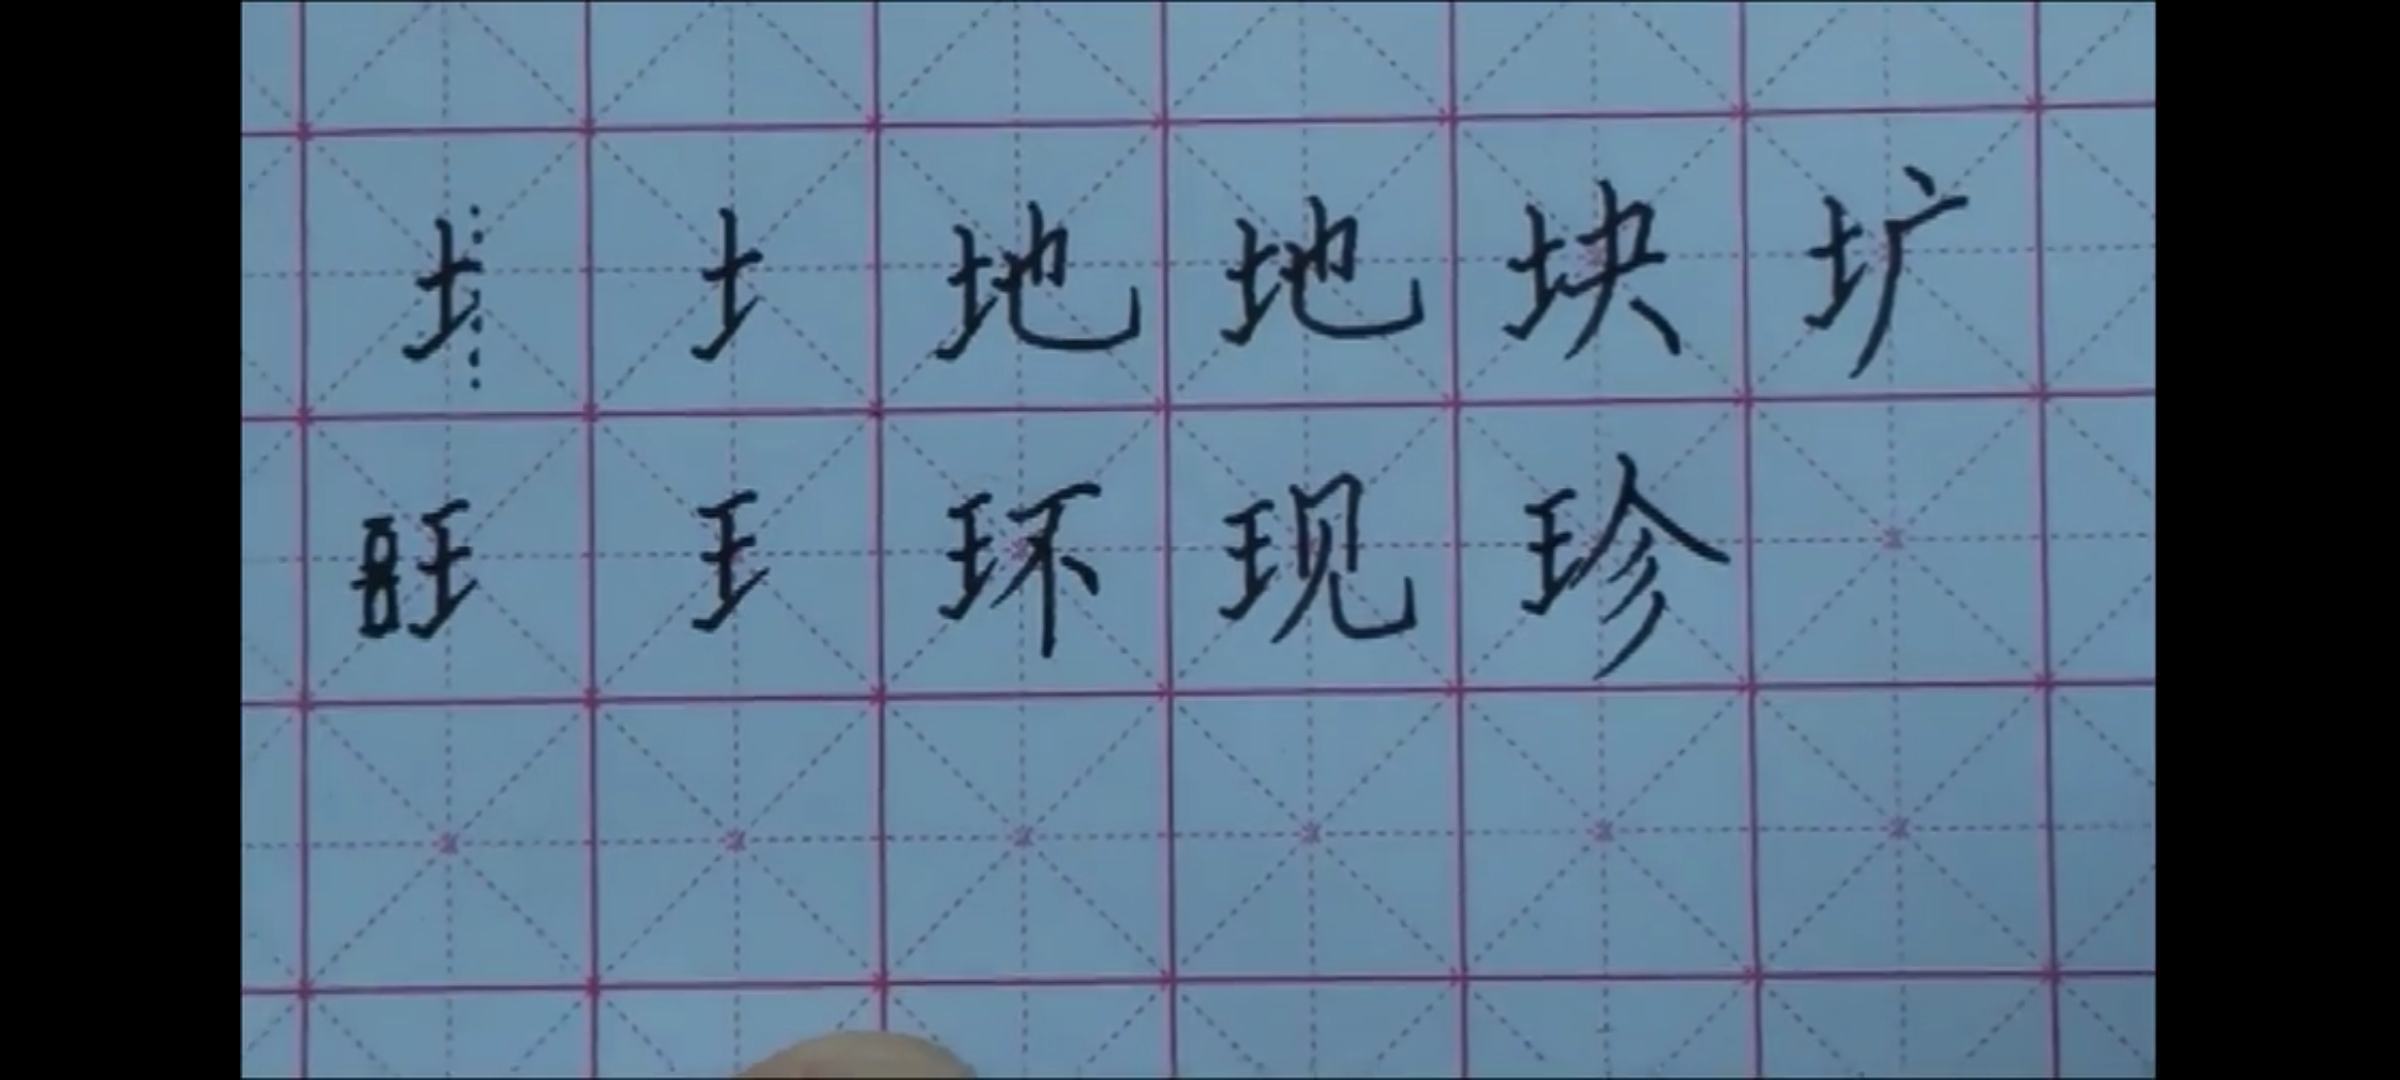 土 土 地 地 块 圹
王 王 环 现 珍